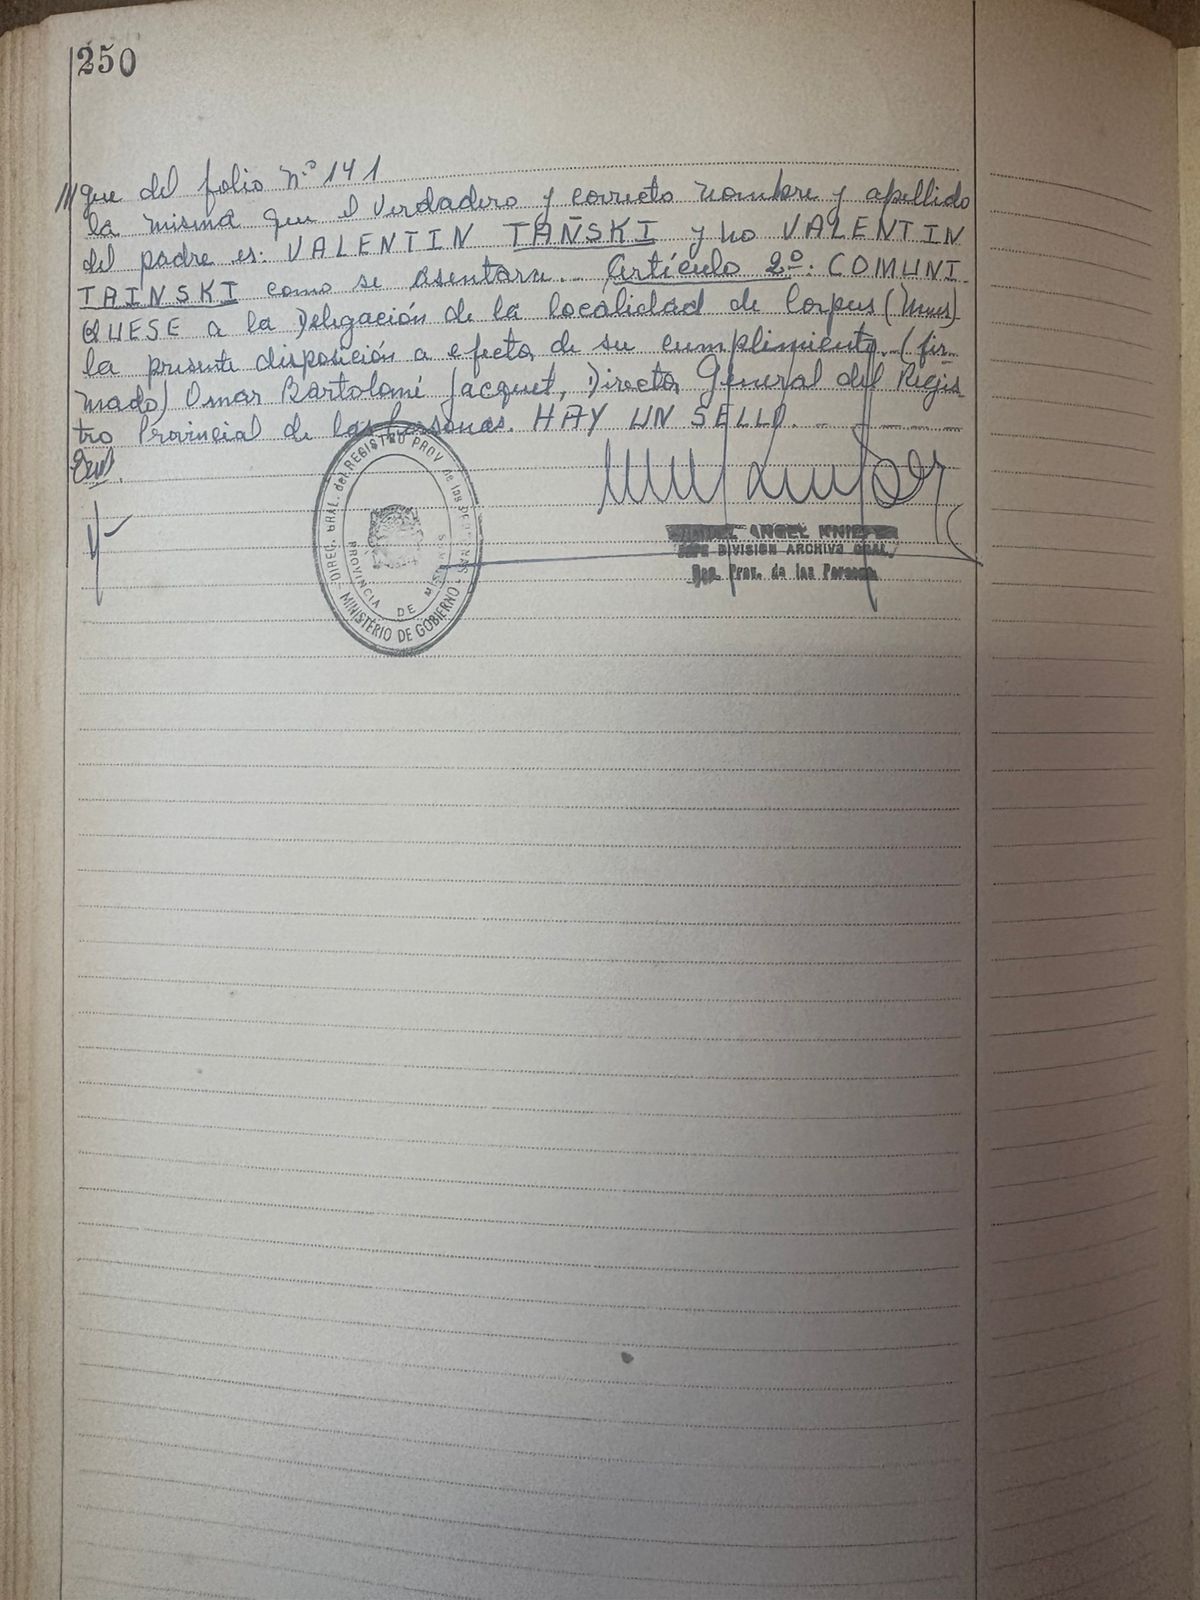 250
///gue del folio Nº 141
la misma que el verdadero y correcto nombre y apellido
del padre es. VALENTIN TAÑSKI y no VALENTIN
TAINSKI como se asentara.. Artículo 2º. COMUNI
QUESE a la Delegación de la localidad de Corpus (Mnes)
la presente disposición a efecto de su cumplimiento. (fir
mado) Omar Bartolomé Jacquet, Director General del Regis
tro Provincial de las Personas. HAY UN SELLO.
DIREC. GRAL. del REGISTRO PROV. de las PERSONAS
PROVINCIA DE MISIONES
MINISTERIO DE GOBIERNO
ANGEL KNIE
JEFE DIVISION ARCHIVO GRAL.
Reg. Prov. de las Personas